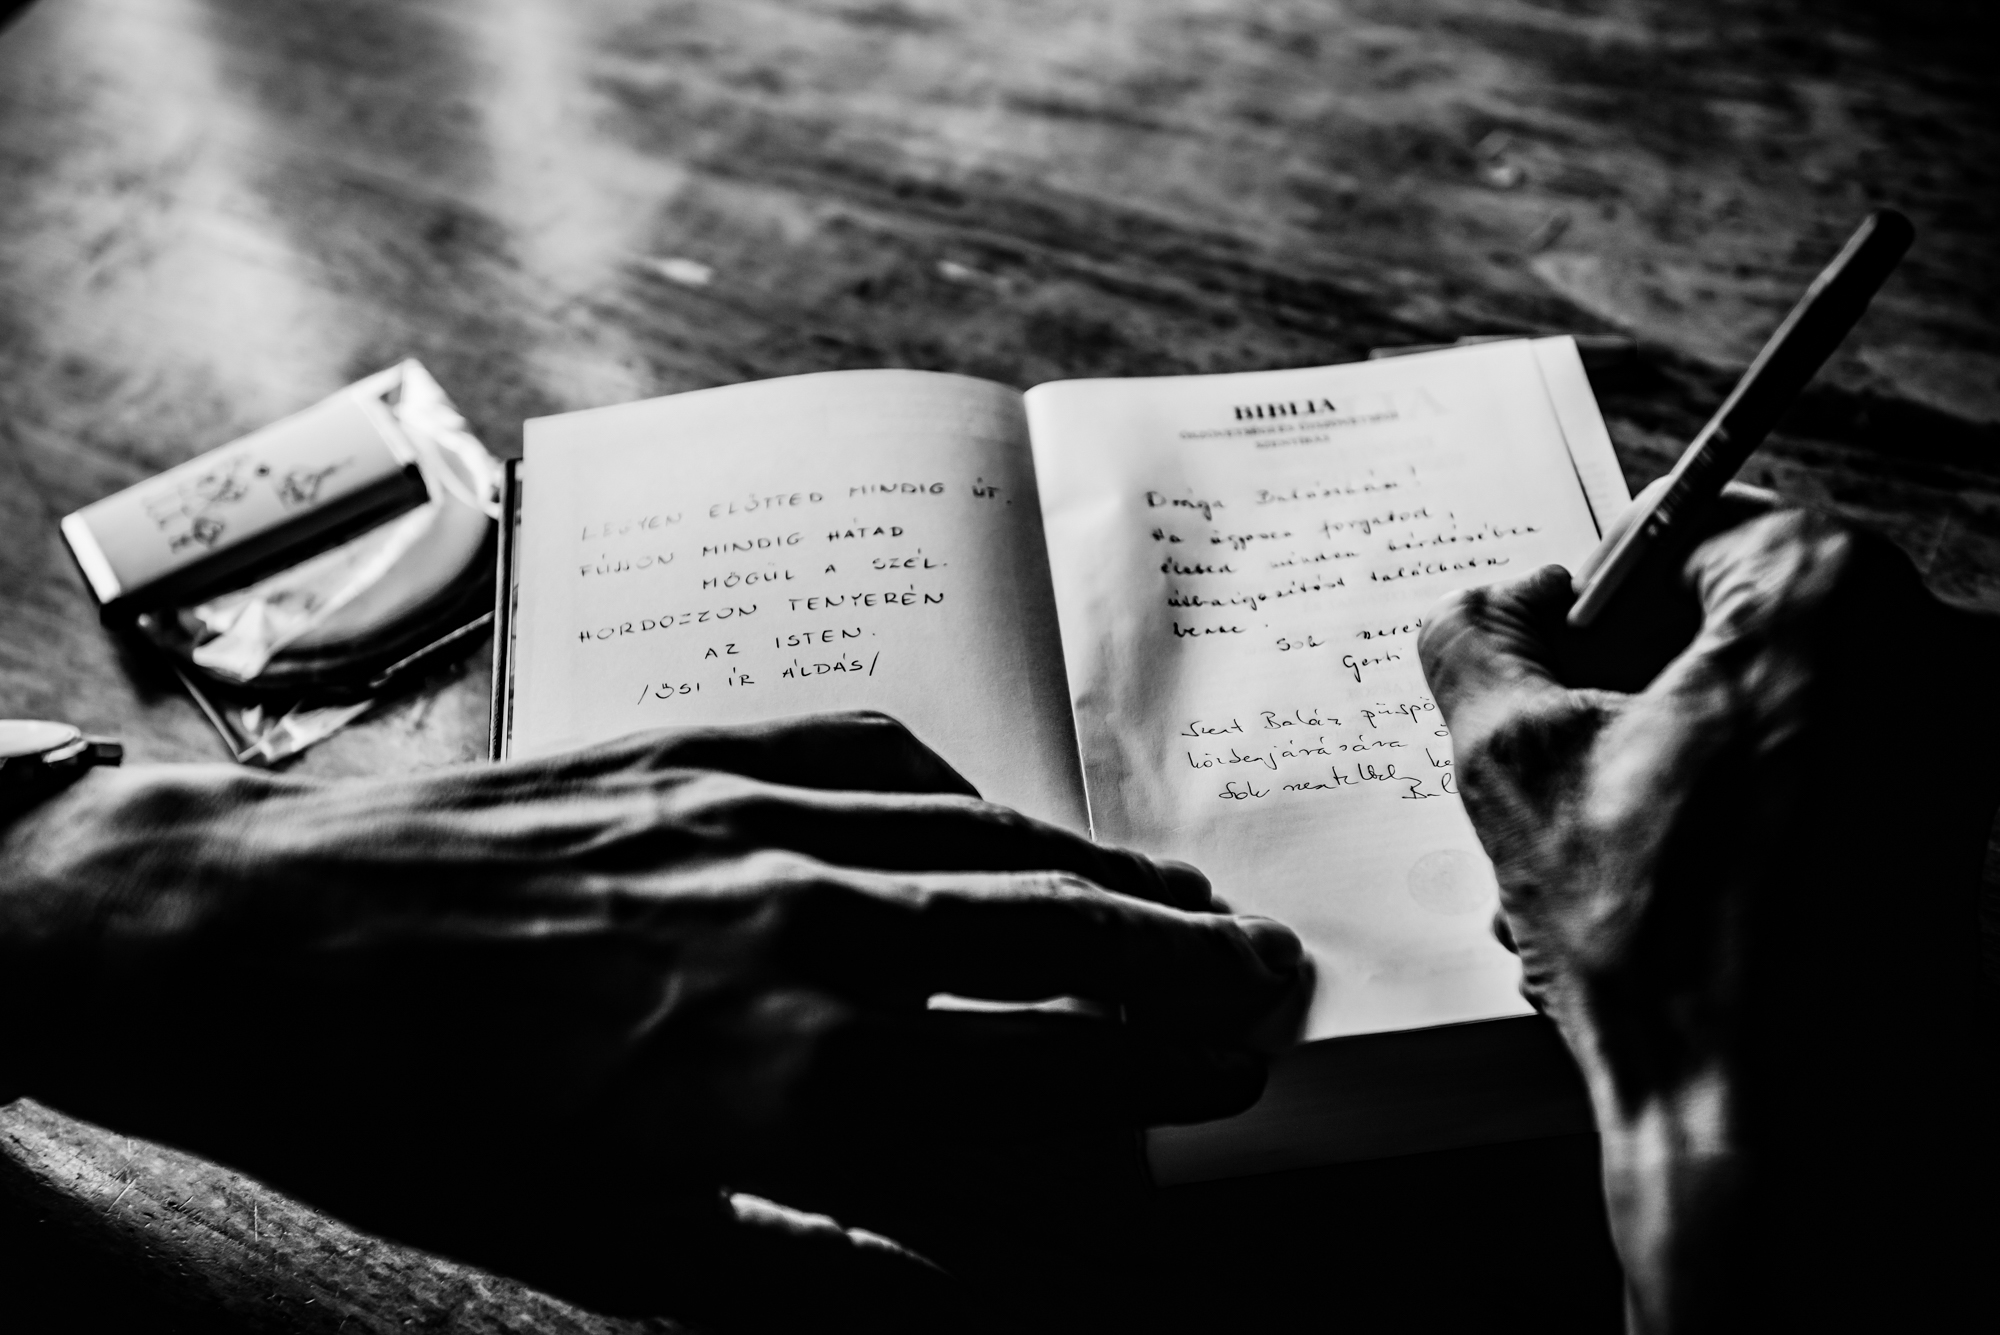 LEGYEN ELŐTTED MINDIG ÚT.
FÚJJON MINDIG HÁTAD
MÖGÜL A SZÉL.
HORDOZZON TENYERÉN
AZ ISTEN.
/ŐSI ÍR ÁLDÁS/
BIBLIA
Drága Balázskám!
Ha ügyesen forgatod,
életed minden kérdésében
útbaigazítást találhatsz
benne.
Sok szeret
Gerti
Szent Balázs püspö
közbenjárására
Sok szeretettel
Bal